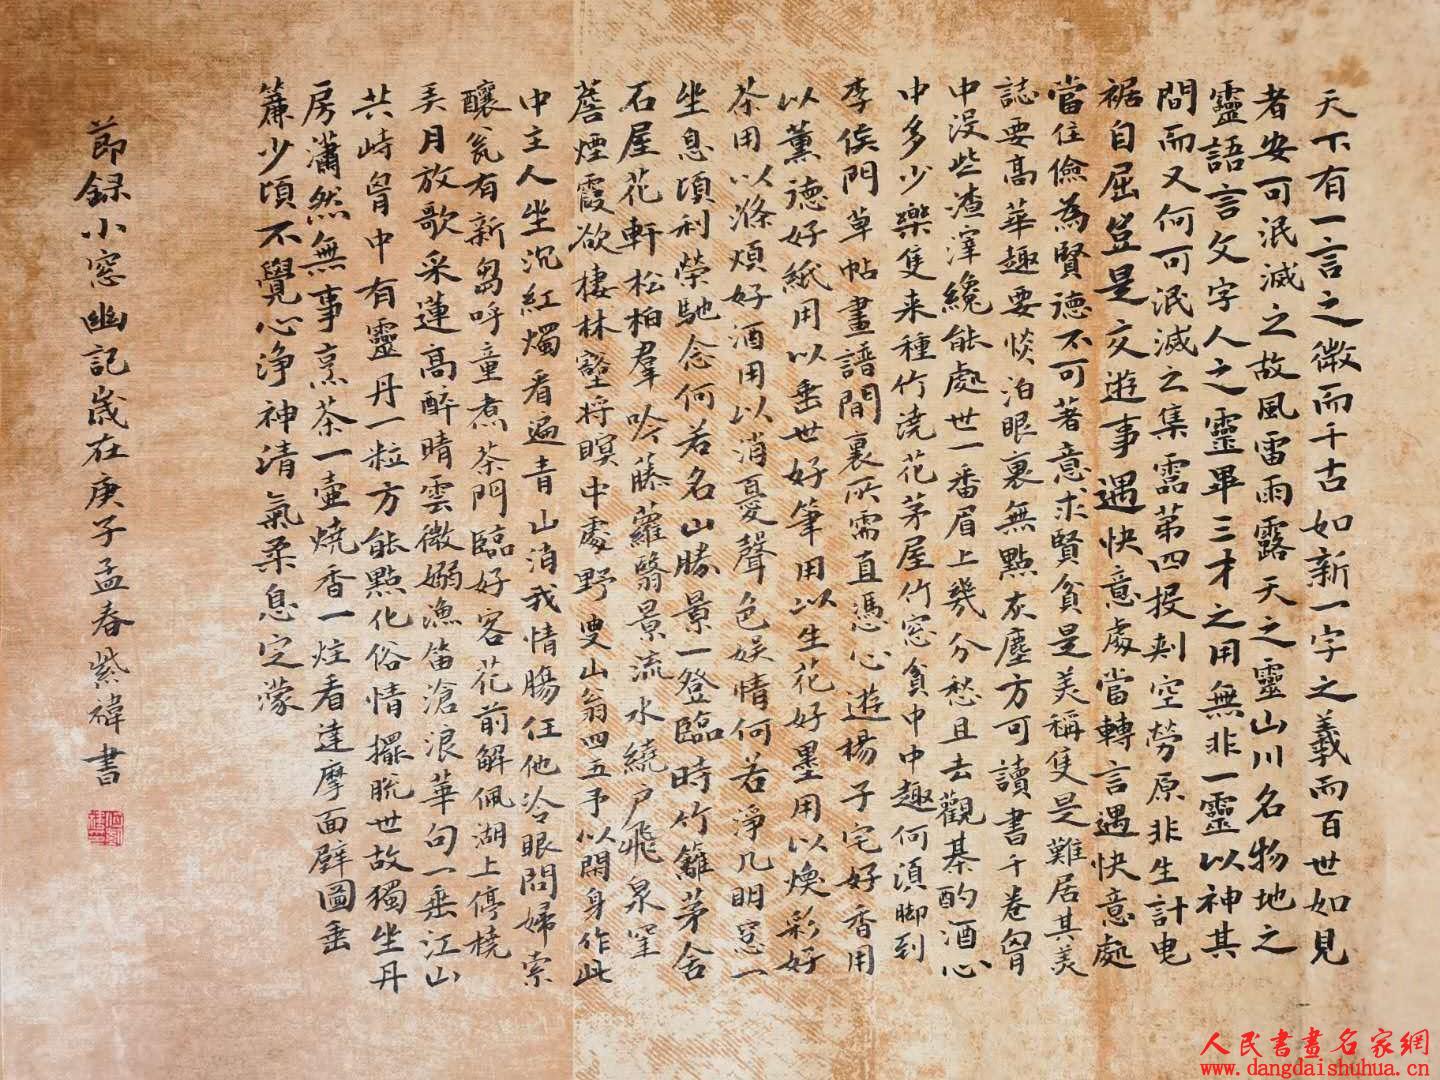 天下有一言之微而千古如新一字之義而百世如見
者安可泯滅之故風雷雨露天之靈山川名物地之
靈語言文字人之靈畢三才之用無非一靈以神其
間而又何可泯滅之集靈第四投刺空勞原非生計曳
裾自屈豈是交遊事遇快意處當轉言遇快意處
當住儉為賢德不可著意求賢貧是美稱隻是難居其美
誌要高華趣要淡泊眼裏無點灰塵方可讀書千卷胷
中沒些渣滓纔能處世一番眉上幾分愁且去觀棊酌酒心
中多少樂隻来種竹澆花茅屋竹窓貧中中趣何須脚到
李侯門草帖畫譜間裏所需直憑心遊楊子宅好香用
以薰德好紙用以垂世好筆用以生花好墨用以煥彩好
茶用以滌煩好酒用以消憂聲色娛情何若淨几明窓一
坐息頃利榮馳念何若名山勝景一登臨時竹籬茅舍
石屋花軒松柏羣吟藤蘿翳景流水繞戶飛泉窒
簷煙霞欲棲林壑將暝中處野叟山翁四五予以閒身作此
中主人坐沉紅燭看遍青山消我情腸任他冷眼問婦索
釀瓮有新芻呼童煮茶門臨好客花前解佩湖上停橈
弄月放歌采蓮高醉晴雲微嫋漁笛滄浪華句一垂江山
共峙胷中有靈丹一粒方能點化俗情擺脫世故獨坐丹
房瀟然無事烹茶一壺燒香一炷看達摩面壁圖垂
簾少頃不覺心浄神清氣柔息定濛
節録小窓幽記歲在庚子孟春紫禕書
人民書畫名家網
www.dangdaishuhua.cn